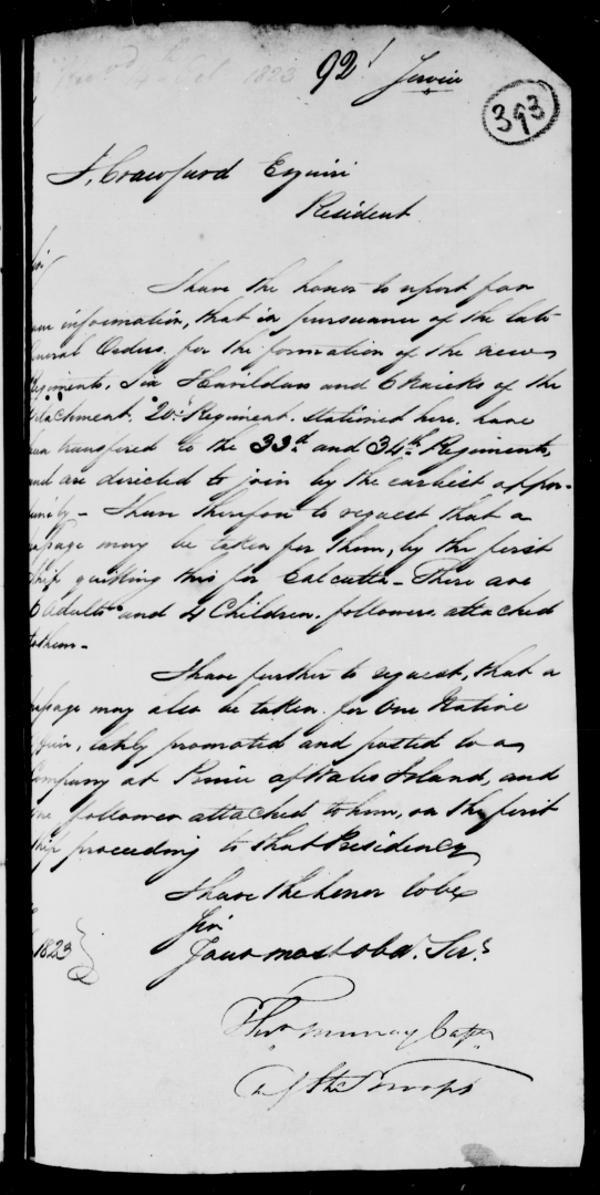 1823 92
393
J. Crawfurd Esquire
Resident
I have the honor to report for
information, that in pursuance of the late
Orders for the formation of the new
Six Havildars and 6 Naicks of the
20th Regiment stationed here have
transfered to the 33d. and 34th. Regiments,
and are directed to join by the earliest oppor-
I have therefore to request that a
may be taken for them, by the first
Ship quitting this for Calcutta - There are
6 Adults and 4 Children followers attached
to them -
I have further to request, that a
may also be taken for One Native
lately promoted and posted to a
Company at Prince of Wales Island, and
follower attached to him, on the first
Ship proceeding to that Presidency
I have the honor to be
Sir
Your most obdt. Ser.
1823
Thos. Murray Captn.
Troops